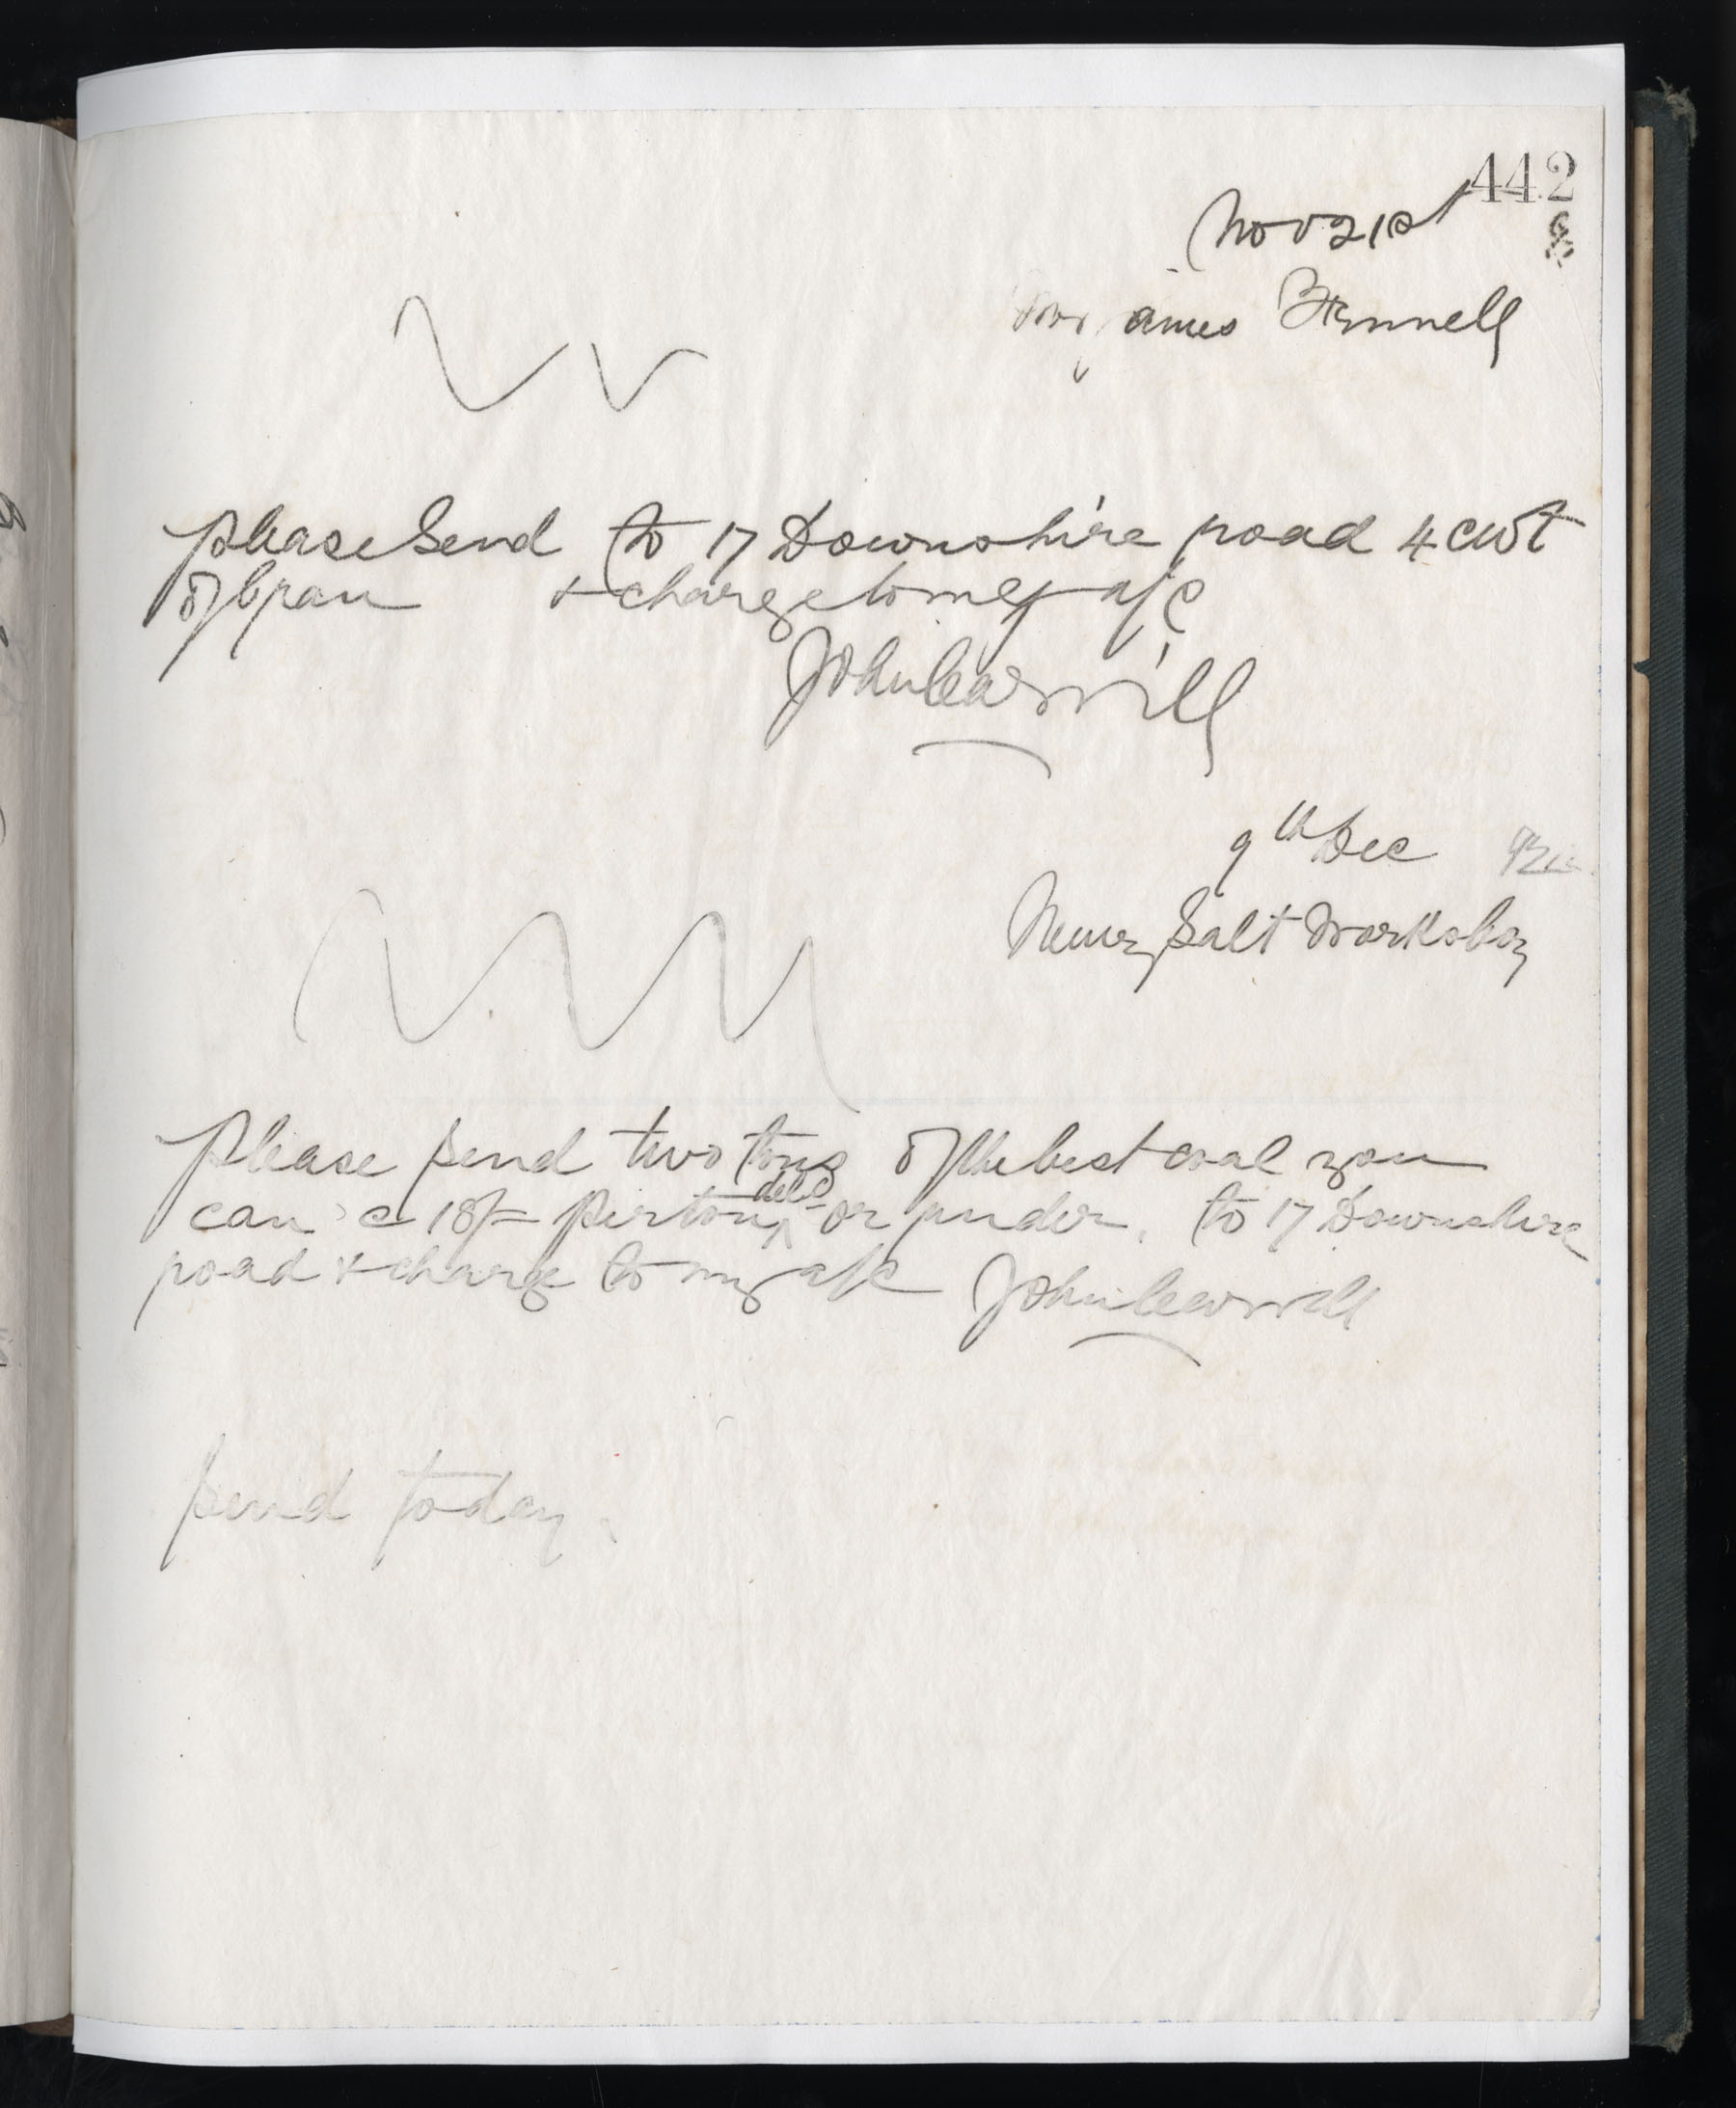 442
Nov 21st
James Fennell
please Send to 17 Downshire road 4 cwt
of bran & charge to my a/c
John Carvill
9th Dec
Newry Salt Works Coy
Please send two tons of the best coal you
can @ 18/= per ton deld or under. to 17 Downshire
road & charge to my a/c John Carvill
send today